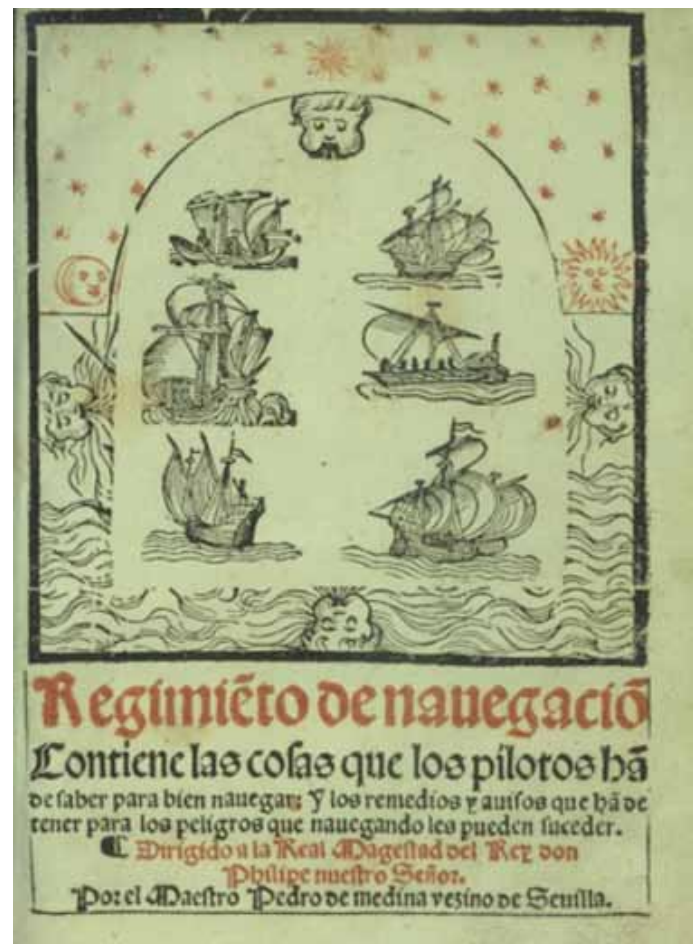 Regimiẽto de nauegaciõ
Contiene las cosas que los pilotos hã
de saber para bien nauegar: Y los remedios y auisos que hã de
tener para los peligros que nauegando les pueden suceder.
¶ Dirigido a la Real Magestad del Rey don
Philipe nuestro Señor.
Por el Maestro Pedro de medina vezino de Seuilla.